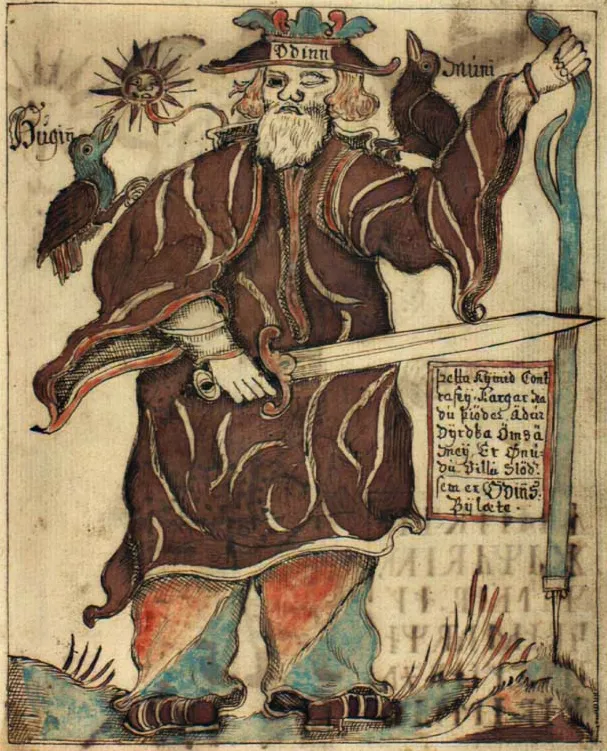 Odinn
Hugin
Muni
Þetta Kÿmed Cont
rafeÿ. Margar
du þióder. Adur
Dÿrdka Omsä
Er Onu
du Villu Slöd.
sem er Odins.
Bÿlæte.